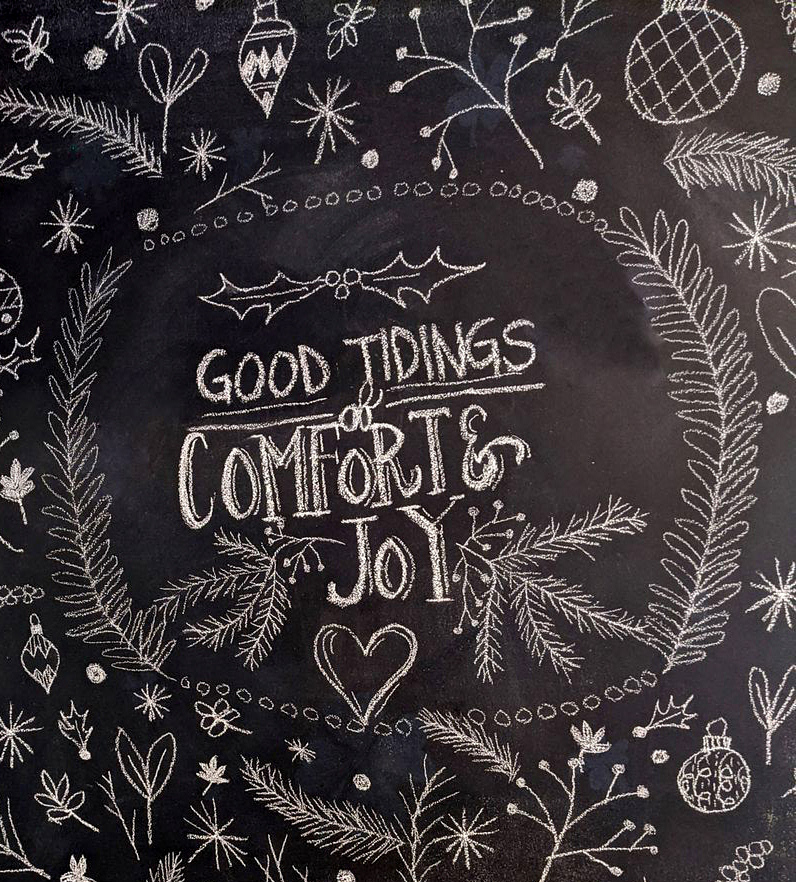 GOOD TIDINGS
of
COMFORT &
JOY